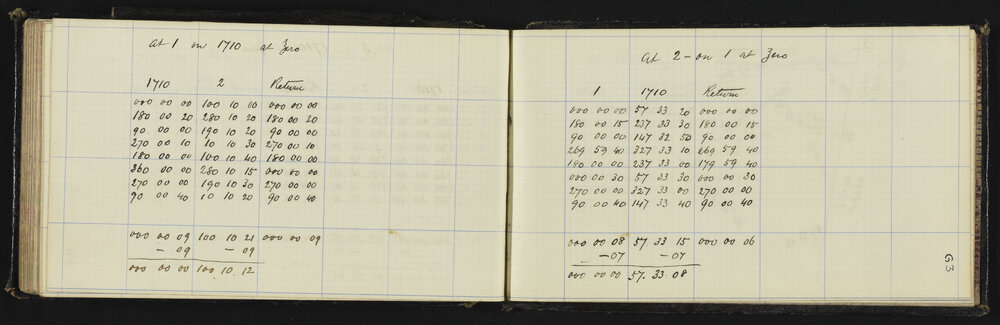 At 1 on 1710 at Zero
1710 2 Return
000 00 00 100 10 00 000 00 00
180 00 20 280 10 20 180 00 20
90 00 00 190 10 20 90 00 00
270 00 10 10 10 30 270 00 10
180 00 00 100 10 40 180 00 00
360 00 00 280 10 15 000 00 00
270 00 00 190 10 30 270 00 00
90 00 40 10 10 20 90 00 40
000 00 09 100 10 21 000 00 09
- 09 - 09
000 00 00 100. 10. 12
At 2 - on 1 at Zero
1 1710 Return
000 00 00 57 33 20 000 00 00
180 00 15 237 33 30 180 00 15
90 00 00 147 32 50 90 00 00
269 59 40 327 33 10 269 59 40
180 00 00 237 33 00 179 59 40
000 00 30 57 33 30 000 00 30
270 00 00 327 33 00 270 00 00
90 00 40 147 33 40 90 00 40
000 00 08 57 33 15 000 00 06
- 07 - 07
000 00 00 57. 33. 08
63